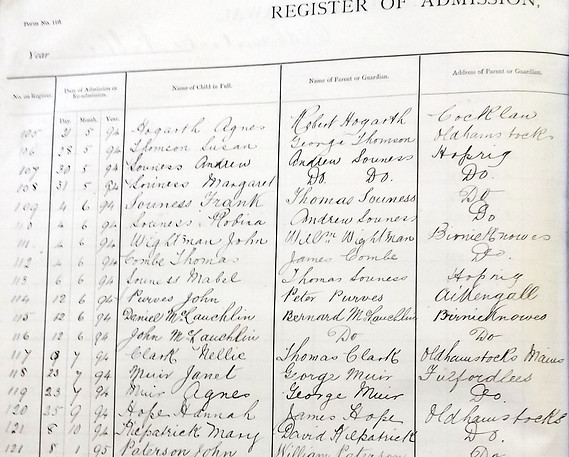 Form No. 118
REGISTER OF ADMISSION,
Year
No. on Register. Date of Admission or Re-admission. Name of Child in Full. Name of Parent or Guardian. Address of Parent or Guardian.
Day. Month. Year.
105 21 5 94 Hogarth Agnes Robert Hogarth Cocklaw
106 28 5 94 Thomson Susan George Thomson Oldhamstocks
107 30 5 94 Souness Andrew Andrew Souness Hoprig
108 31 5 94 Souness Margaret Do. Do. Do.
109 4 6 94 Souness Frank Thomas Souness Do
110 4 6 94 Souness Robina Andrew Souness Do
111 4 6 94 Wightman John Willm Wightman Birnieknowes
112 4 6 94 Combe Thomas James Combe Do.
113 6 6 94 Souness Mabel Thomas Souness Hoprig
114 12 6 94 Purves John Peter Purves Aikengall
115 12 6 94 Daniel McLauchlin Bernard McLauchlin Birnieknowes
116 12 6 94 John McLauchlin Do Do
117 8 7 94 Clark Nellie Thomas Clark Oldhamstocks Mains
118 23 7 94 Muir Janet George Muir Fulfordlees
119 23 7 94 Muir Agnes George Muir Do.
120 25 9 94 Hope Hannah James Hope Oldhamstocks
121 8 10 94 Kilpatrick Mary David Kilpatrick Do.
121 8 1 95 Paterson John William Paterson Do